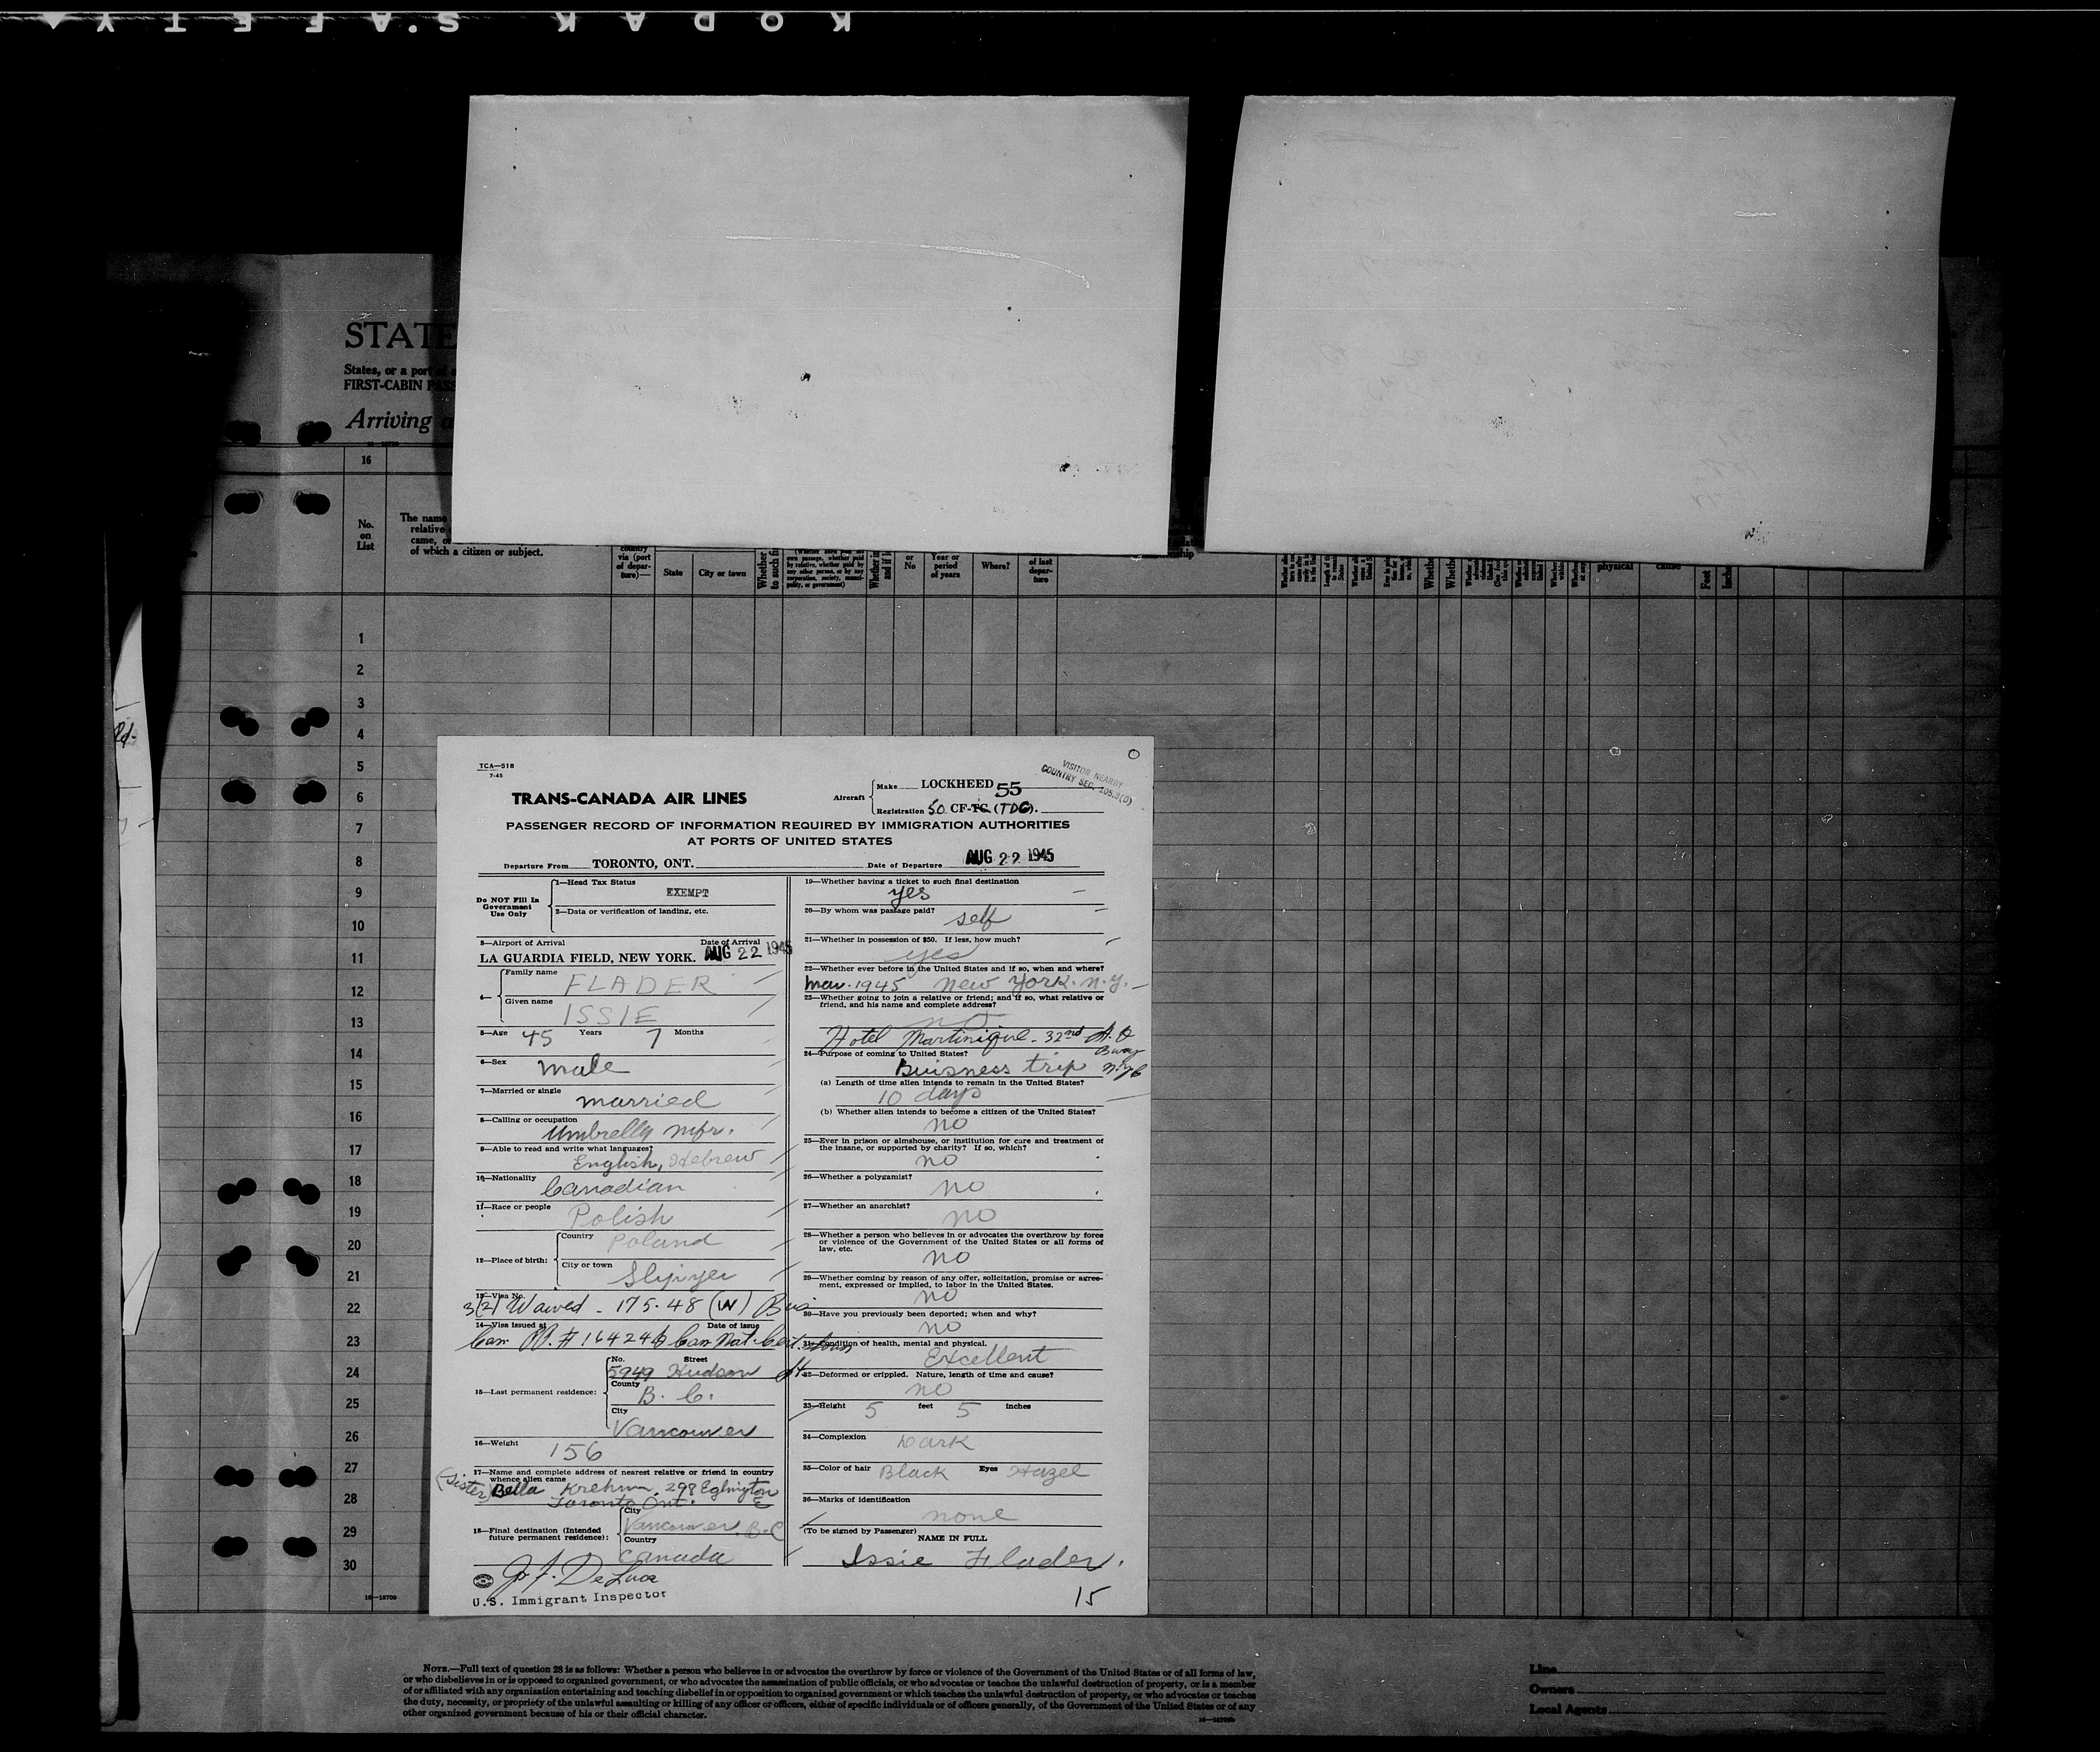 KODAK SAFETY
STATE
States, or a port of
FIRST-CABIN PASS
Arriving a
16
No.
on
List
The name
relative
came, or
of which a citizen or subject.
country
via (port
of depar-
ture)—
State
City or town
or
No
Year or
period
of years
Where?
of last
depar-
ture
physical
cause
Feet
1
2
3
4
5
6
7
8
9
10
11
12
13
14
15
16
17
18
19
20
21
22
23
24
25
26
27
28
29
30
16—18709
TCA—518
7-45
TRANS-CANADA AIR LINES
Aircraft
Make LOCKHEED 55
Registration 50 CF-TC (TDG).
VISITOR NEARBY
COUNTRY SEC.
PASSENGER RECORD OF INFORMATION REQUIRED BY IMMIGRATION AUTHORITIES
AT PORTS OF UNITED STATES
Departure From TORONTO, ONT. Date of Departure AUG 22 1945
Do NOT Fill In
Government
Use Only
1—Head Tax Status
EXEMPT
2—Data or verification of landing, etc.
3—Airport of Arrival Date of Arrival
LA GUARDIA FIELD, NEW YORK. AUG 22 1945
4—
Family name
FLADER
Given name
ISSIE
5—Age 45 Years 7 Months
6—Sex male
7—Married or single
married
8—Calling or occupation
Umbrella mfr.
9—Able to read and write what languages?
English, Hebrew
10—Nationality Canadian
11—Race or people Polish
12—Place of birth:
Country Poland
City or town
13—Visa No.
3(2) Waived - 175.48 (W) Bus
14—Visa issued at Date of issue
Can PP. # 164246 Can Nat. Cert.
15—Last permanent residence:
No. Street
5949 Hudson St.
County
B. C.
City
Vancouver
16—Weight 156
17—Name and complete address of nearest relative or friend in country
whence alien came
(Sister) Bella Krehm, 298 Eglington E
Toronto Ont.
18—Final destination (Intended
future permanent residence):
City
Vancouver, B.C
Country
Canada
U.S. Immigrant Inspector
19—Whether having a ticket to such final destination
yes
20—By whom was passage paid?
self
21—Whether in possession of $50. If less, how much?
yes
22—Whether ever before in the United States and if so, when and where?
Mar. 1945 New York. N.Y.
23—Whether going to join a relative or friend; and if so, what relative or
friend, and his name and complete address?
no
Hotel Martinique - 32nd St. &
Bway
24—Purpose of coming to United States?
Buisness trip
(a) Length of time alien intends to remain in the United States?
10 days
(b) Whether alien intends to become a citizen of the United States?
no
25—Ever in prison or almshouse, or institution for care and treatment of
the insane, or supported by charity? If so, which?
no
26—Whether a polygamist?
no
27—Whether an anarchist?
no
28—Whether a person who believes in or advocates the overthrow by force
or violence of the Government of the United States or all forms of
law, etc.
no
29—Whether coming by reason of any offer, solicitation, promise or agree-
ment, expressed or implied, to labor in the United States.
no
30—Have you previously been deported; when and why?
no
31—Condition of health, mental and physical.
Excellent
32—Deformed or crippled. Nature, length of time and cause?
no
33—Height 5 feet 5 inches
34—Complexion Dark
35—Color of hair Black Eyes Hazel
36—Marks of identification
none
(To be signed by Passenger)
NAME IN FULL
Issie Flader.
15
NOTE.—Full text of question 28 is as follows: Whether a person who believes in or advocates the overthrow by force or violence of the Government of the United States or of all forms of law,
or who disbelieves in or is opposed to organized government, or who advocates the assassination of public officials, or who advocates or teaches the unlawful destruction of property, or is a member
of or affiliated with any organization entertaining and teaching disbelief in or opposition to organized government or which teaches the unlawful destruction of property, or who advocates or teaches
the duty, necessity, or propriety of the unlawful assaulting or killing of any officer or officers, either of specific individuals or of officers generally, of the Government of the United States or of any
other organized government because of his or their official character.
Line
Owners
Local Agents